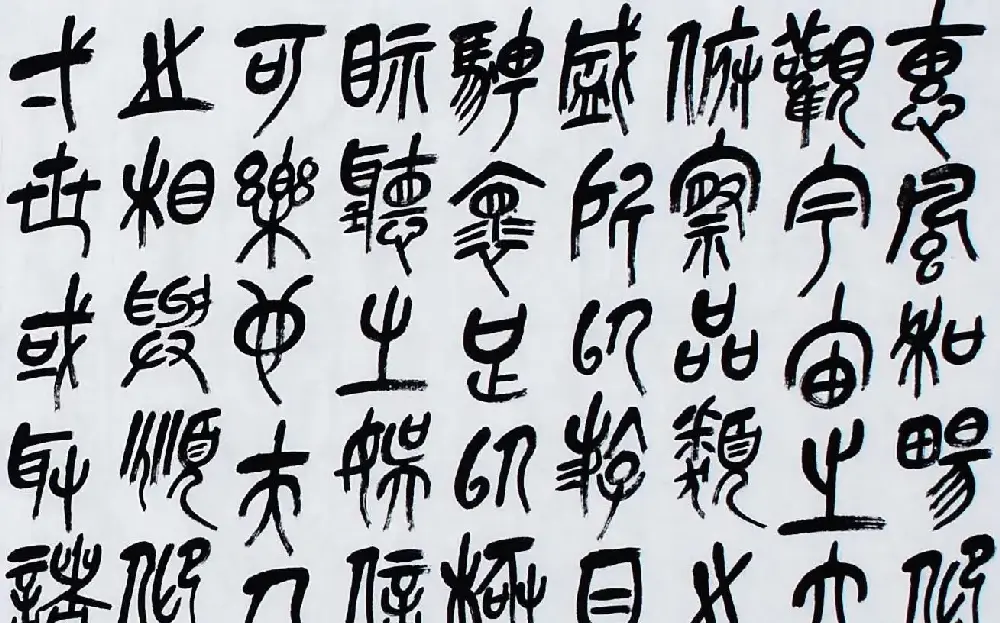 惠風和暢仰
觀宇宙之大
俯察品類之
盛所以遊目
騁懷足以極
視聽之娛信
可樂也夫人
之相與俯仰
一世或取諸